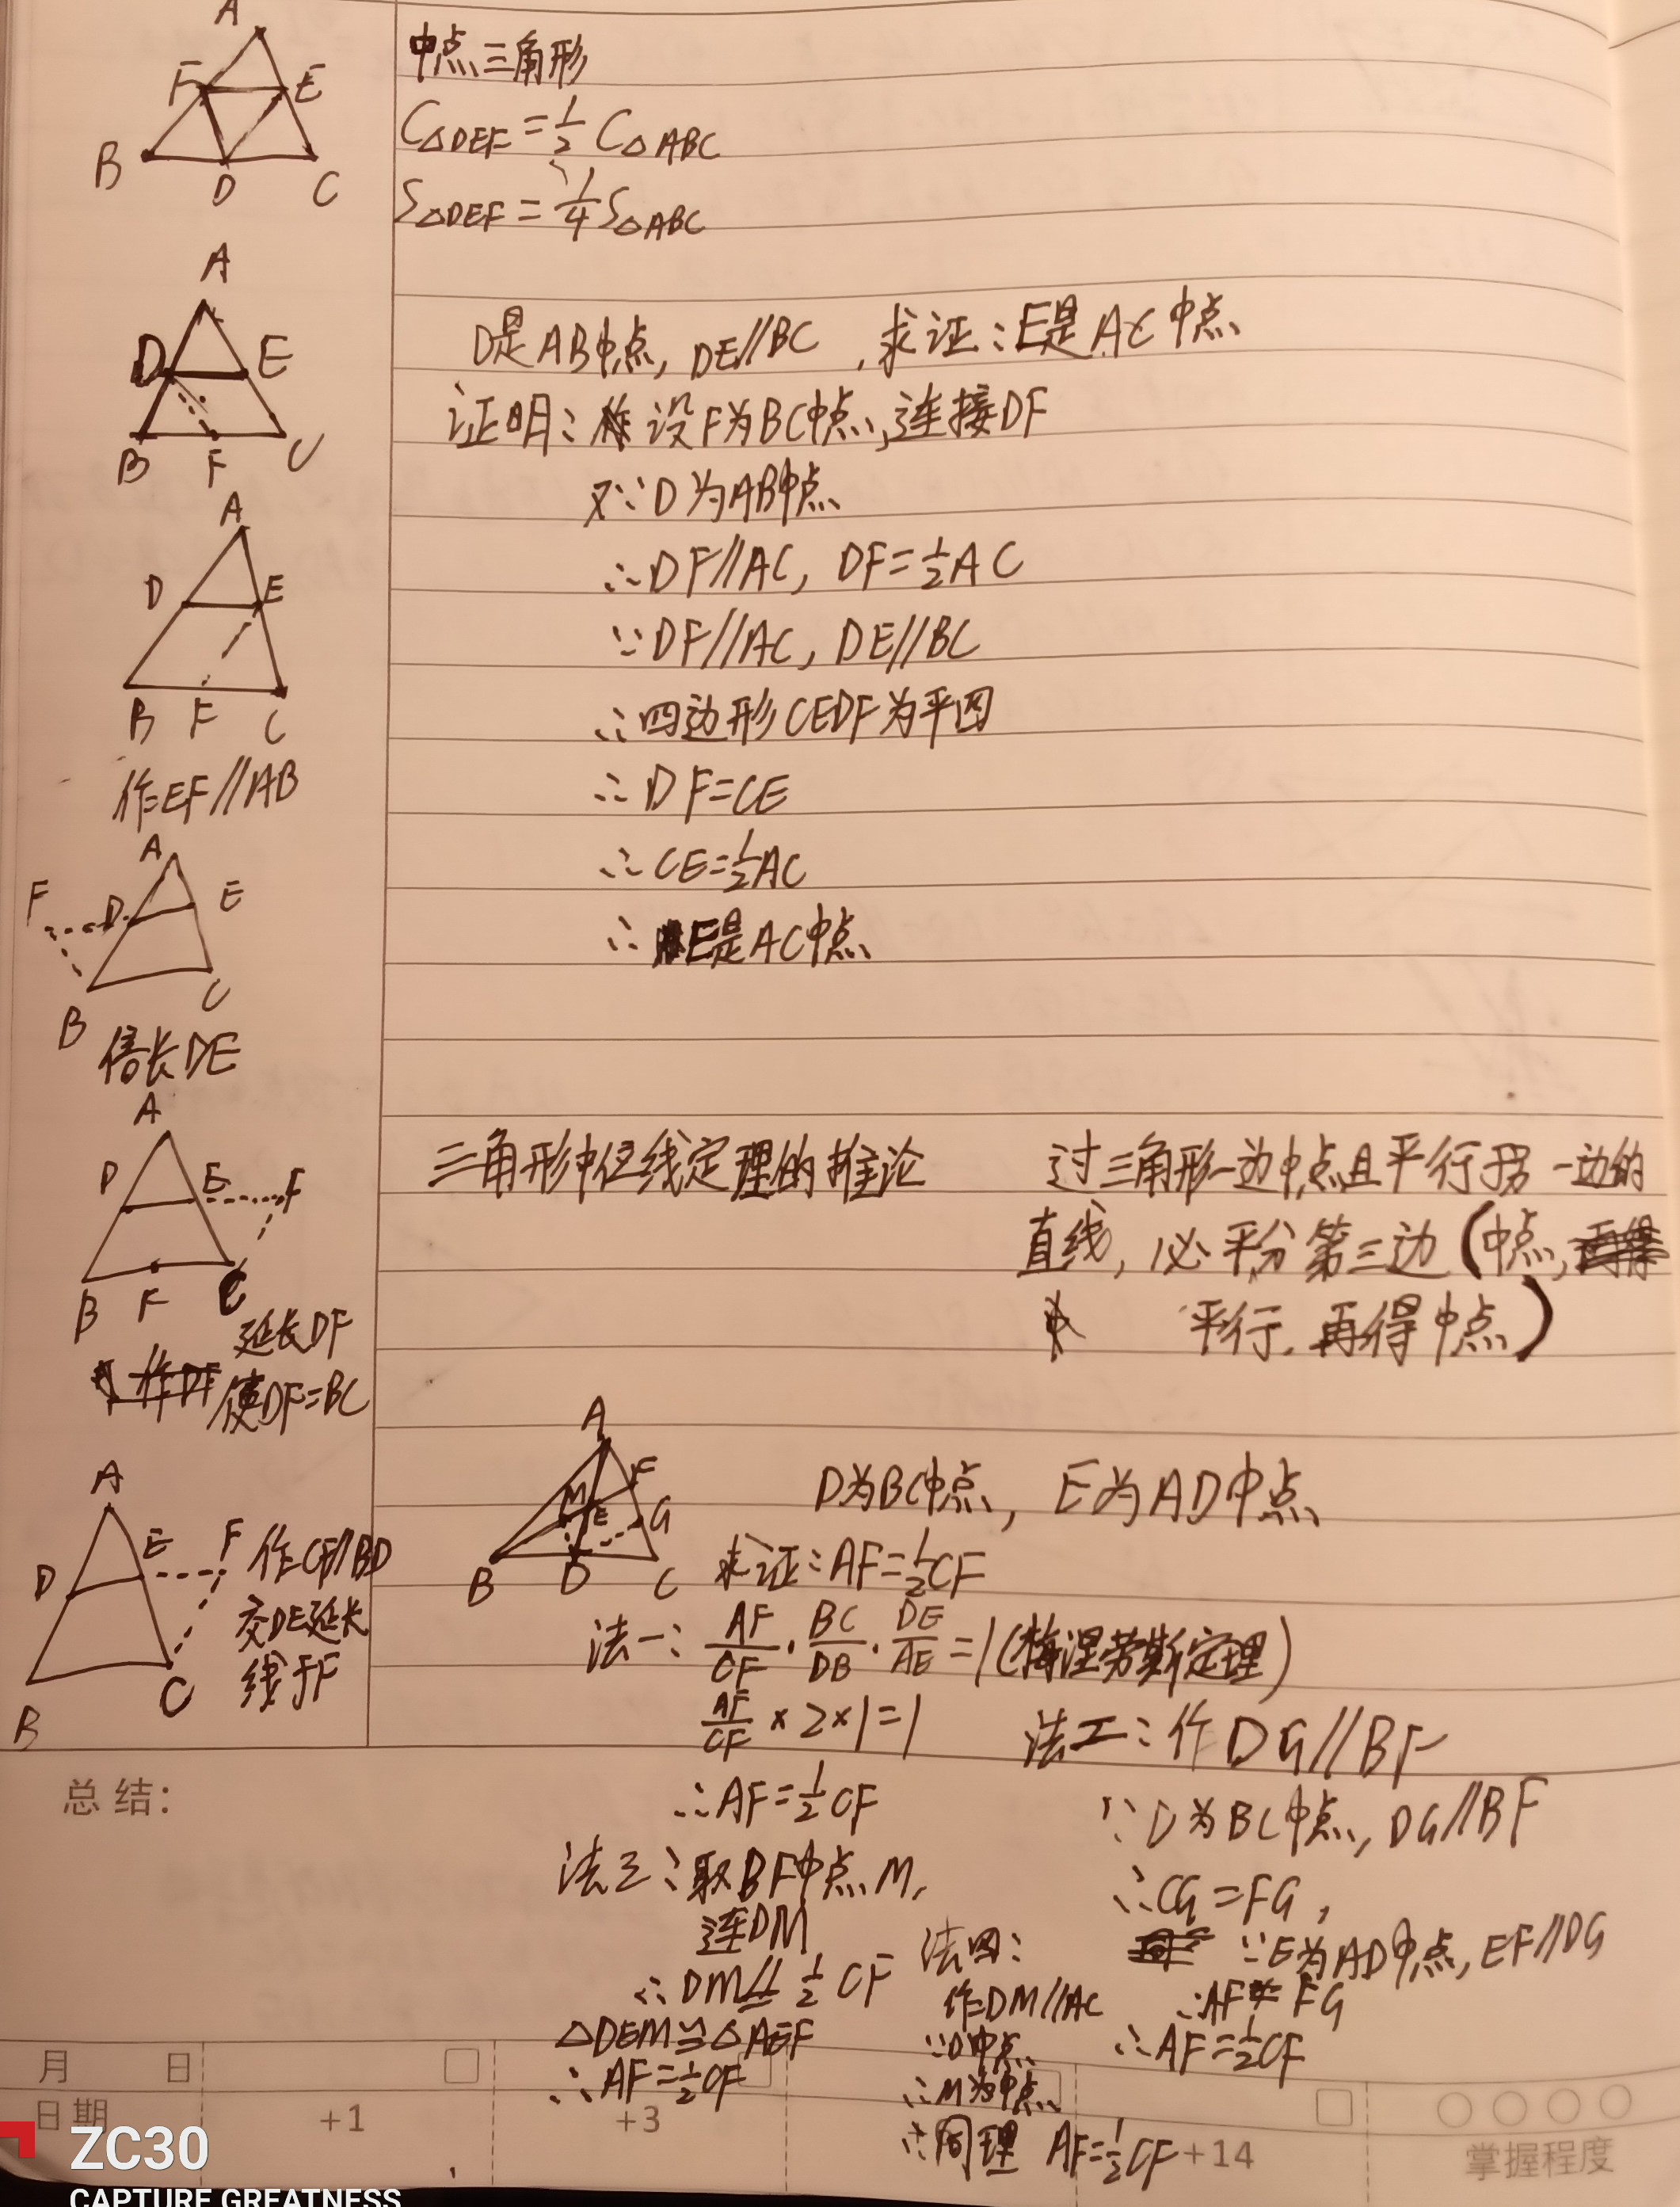 A
F E
B D C
中点三角形
C△DEF = 1/2 C△ABC
S△DEF = 1/4 S△ABC
A
D E
B F C
D是AB中点, DE//BC, 求证: E是AC中点
证明: 设F为BC中点, 连接DF
又∵D为AB中点
∴DF//AC, DF=1/2AC
∵DF//AC, DE//BC
∴四边形CEDF为平四
∴DF=CE
∴CE=1/2AC
∴E是AC中点
A
D E
B F C
作EF//AB
A
F D E
B C
倍长DE
A
D E F
B F C
延长DF
使DF=BC
A
D E F
B C
作CF//BD
交DE延长
线于F
三角形中位线定理的推论
过三角形一边中点且平行另一边的
直线, 必平分第三边(中点,
平行, 再得中点)
A
M F
E G
B D C
D为BC中点, E为AD中点
求证: AF=1/2CF
法一: AF/CF · BC/DB · DE/AE = 1 (梅涅劳斯定理)
AF/CF × 2 × 1 = 1
∴AF=1/2CF
法二: 作DG//BF
∵D为BC中点, DG//BF
∴CG=FG,
∵E为AD中点, EF//DG
∴AF=FG
∴AF=1/2CF
法三: 取BF中点M,
连DM
∴DM//= 1/2 CF
△DEM≌△AEF
∴AF=1/2CF
法四:
作DM//AC
∵D中点
∴M为中点
∴同理 AF=1/2CF
总结:
月 日
日期 +1 +3 +14 掌握程度
ZC30
CAPTURE GREATNESS